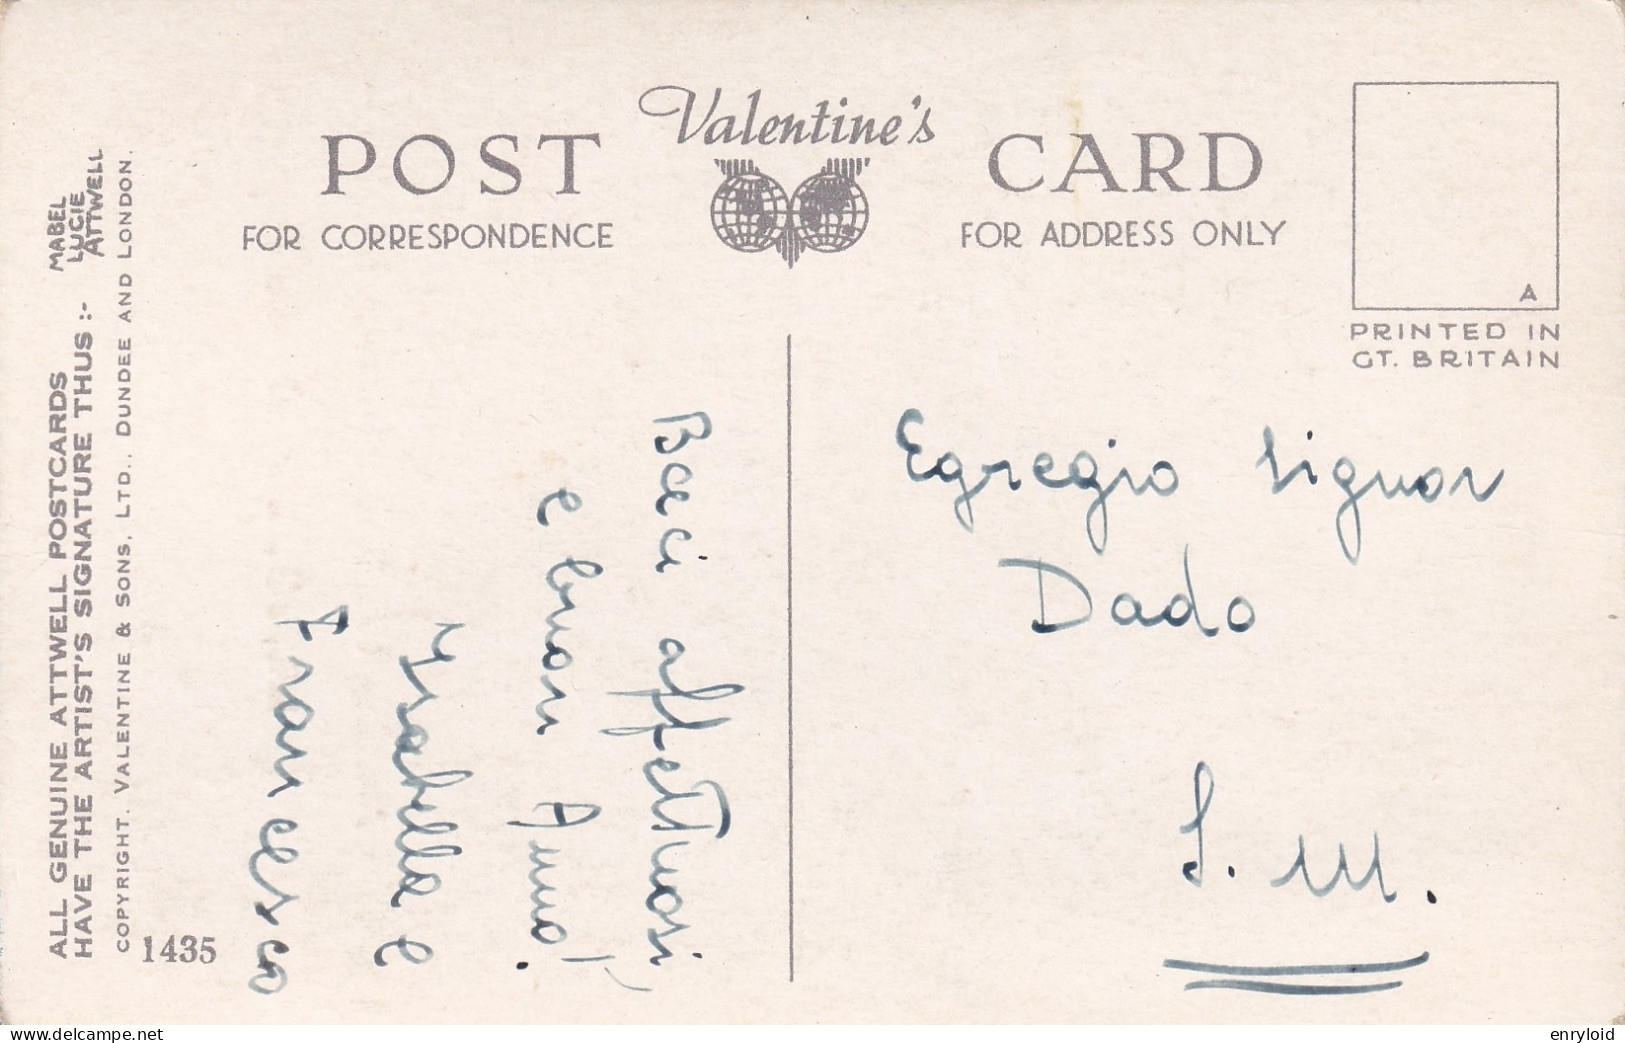 POST
Valentine's
CARD
FOR CORRESPONDENCE
FOR ADDRESS ONLY
A
PRINTED IN
GT. BRITAIN
ALL GENUINE ATTWELL POSTCARDS
HAVE THE ARTIST'S SIGNATURE THUS :-
MABEL
LUCIE
ATTWELL
COPYRIGHT. VALENTINE & SONS, LTD., DUNDEE AND LONDON.
1435
Baci affettuosi,
e buon Anno!
Isabella e
Francesco
Egregio Signor
Dado
S. M.
delcampe.net
enryloid